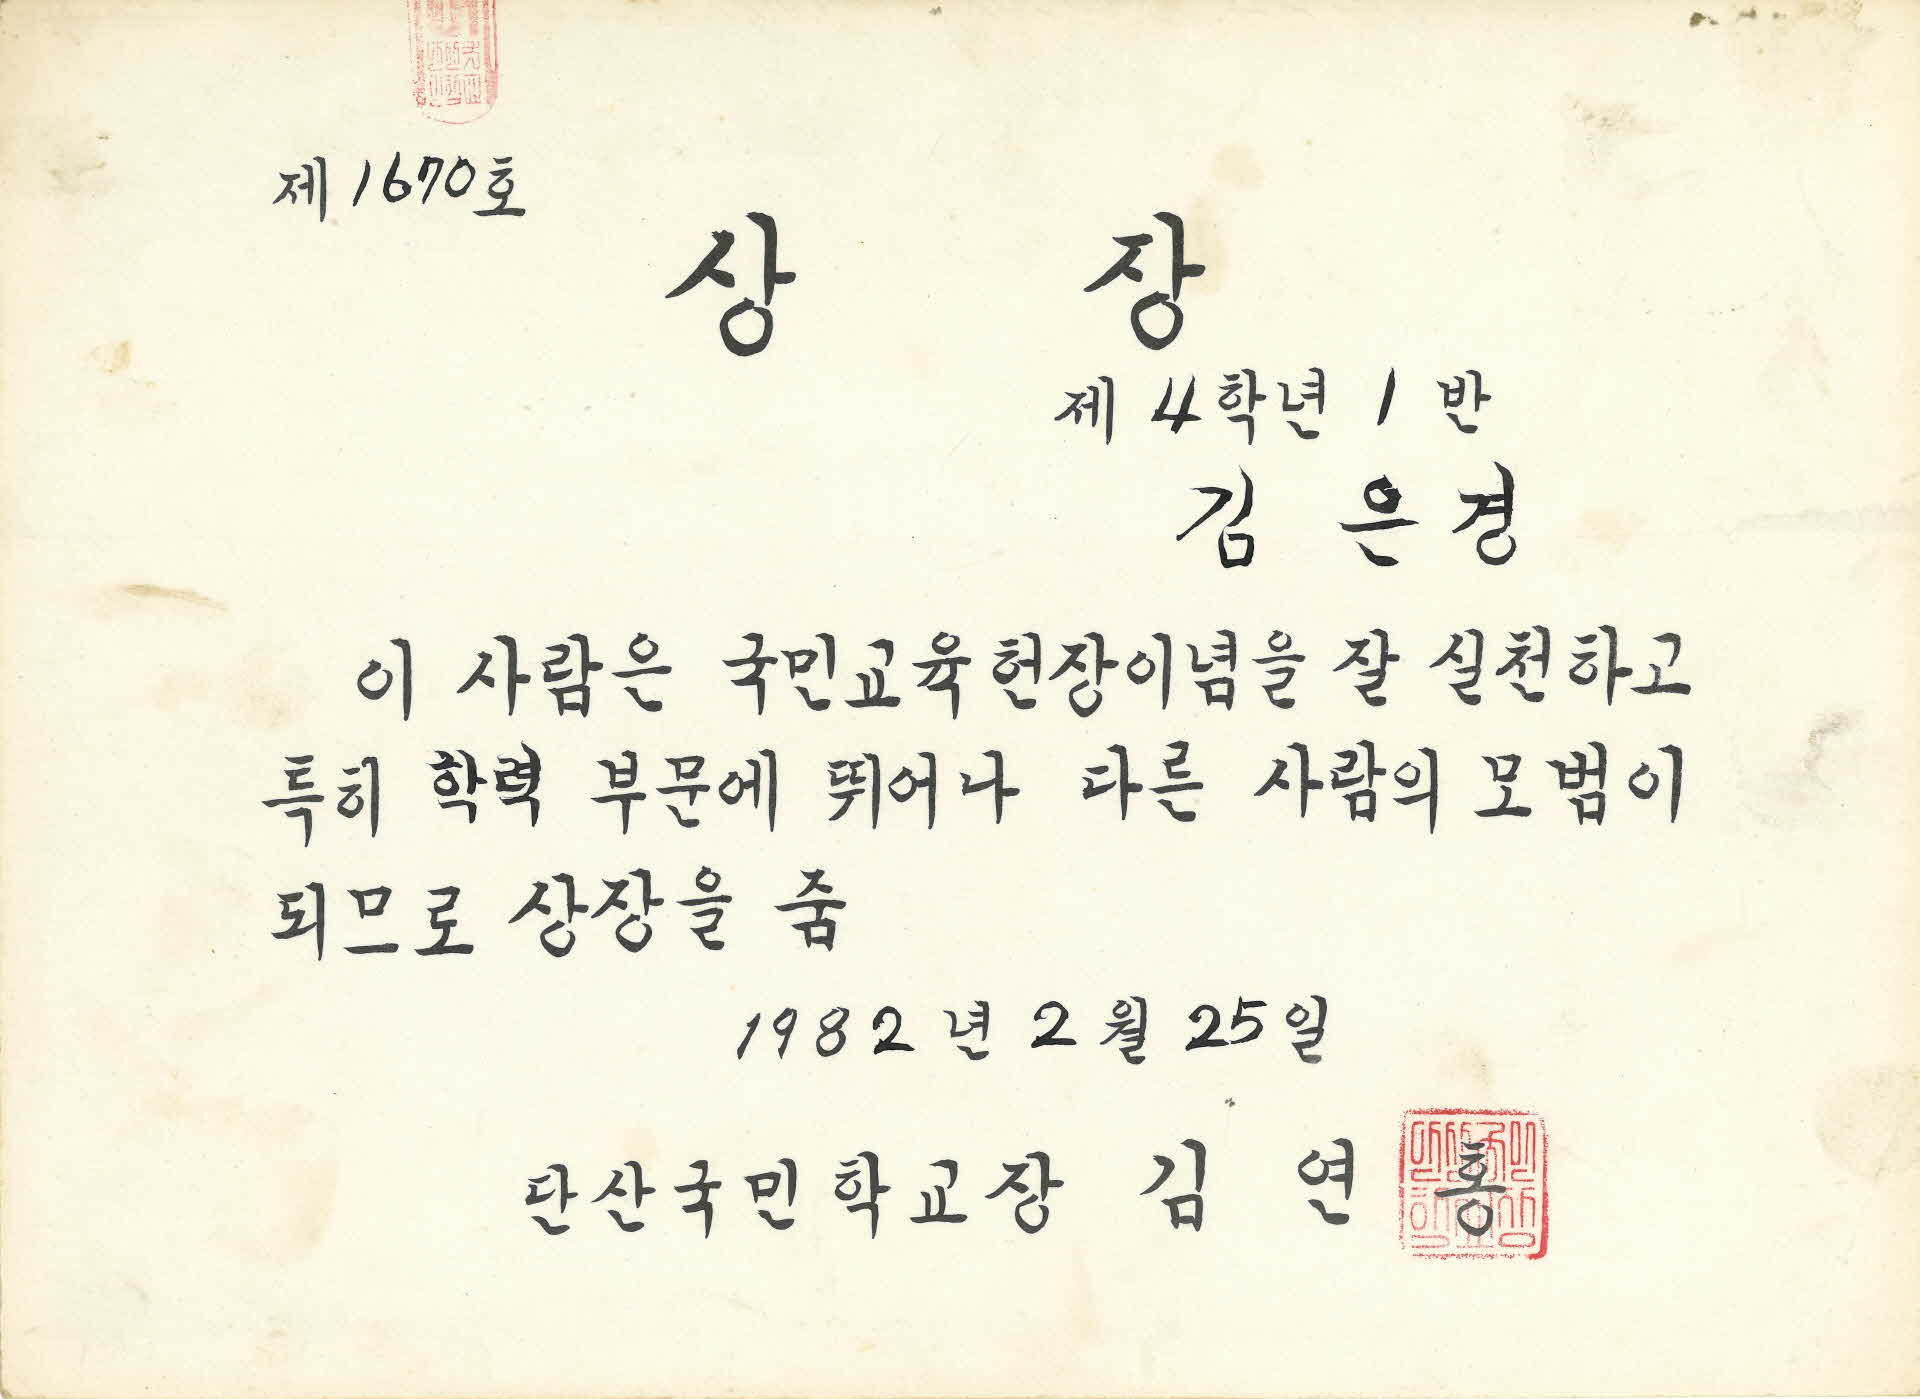 제 1670호
상 장
제 4학년 1 반
김 은 경
이 사람은 국민교육헌장이념을 잘 실천하고
특히 학력 부문에 뛰어나 다른 사람의 모범이
되므로 상장을 줌
1982년 2월 25일
단산국민학교장 김 연 홍